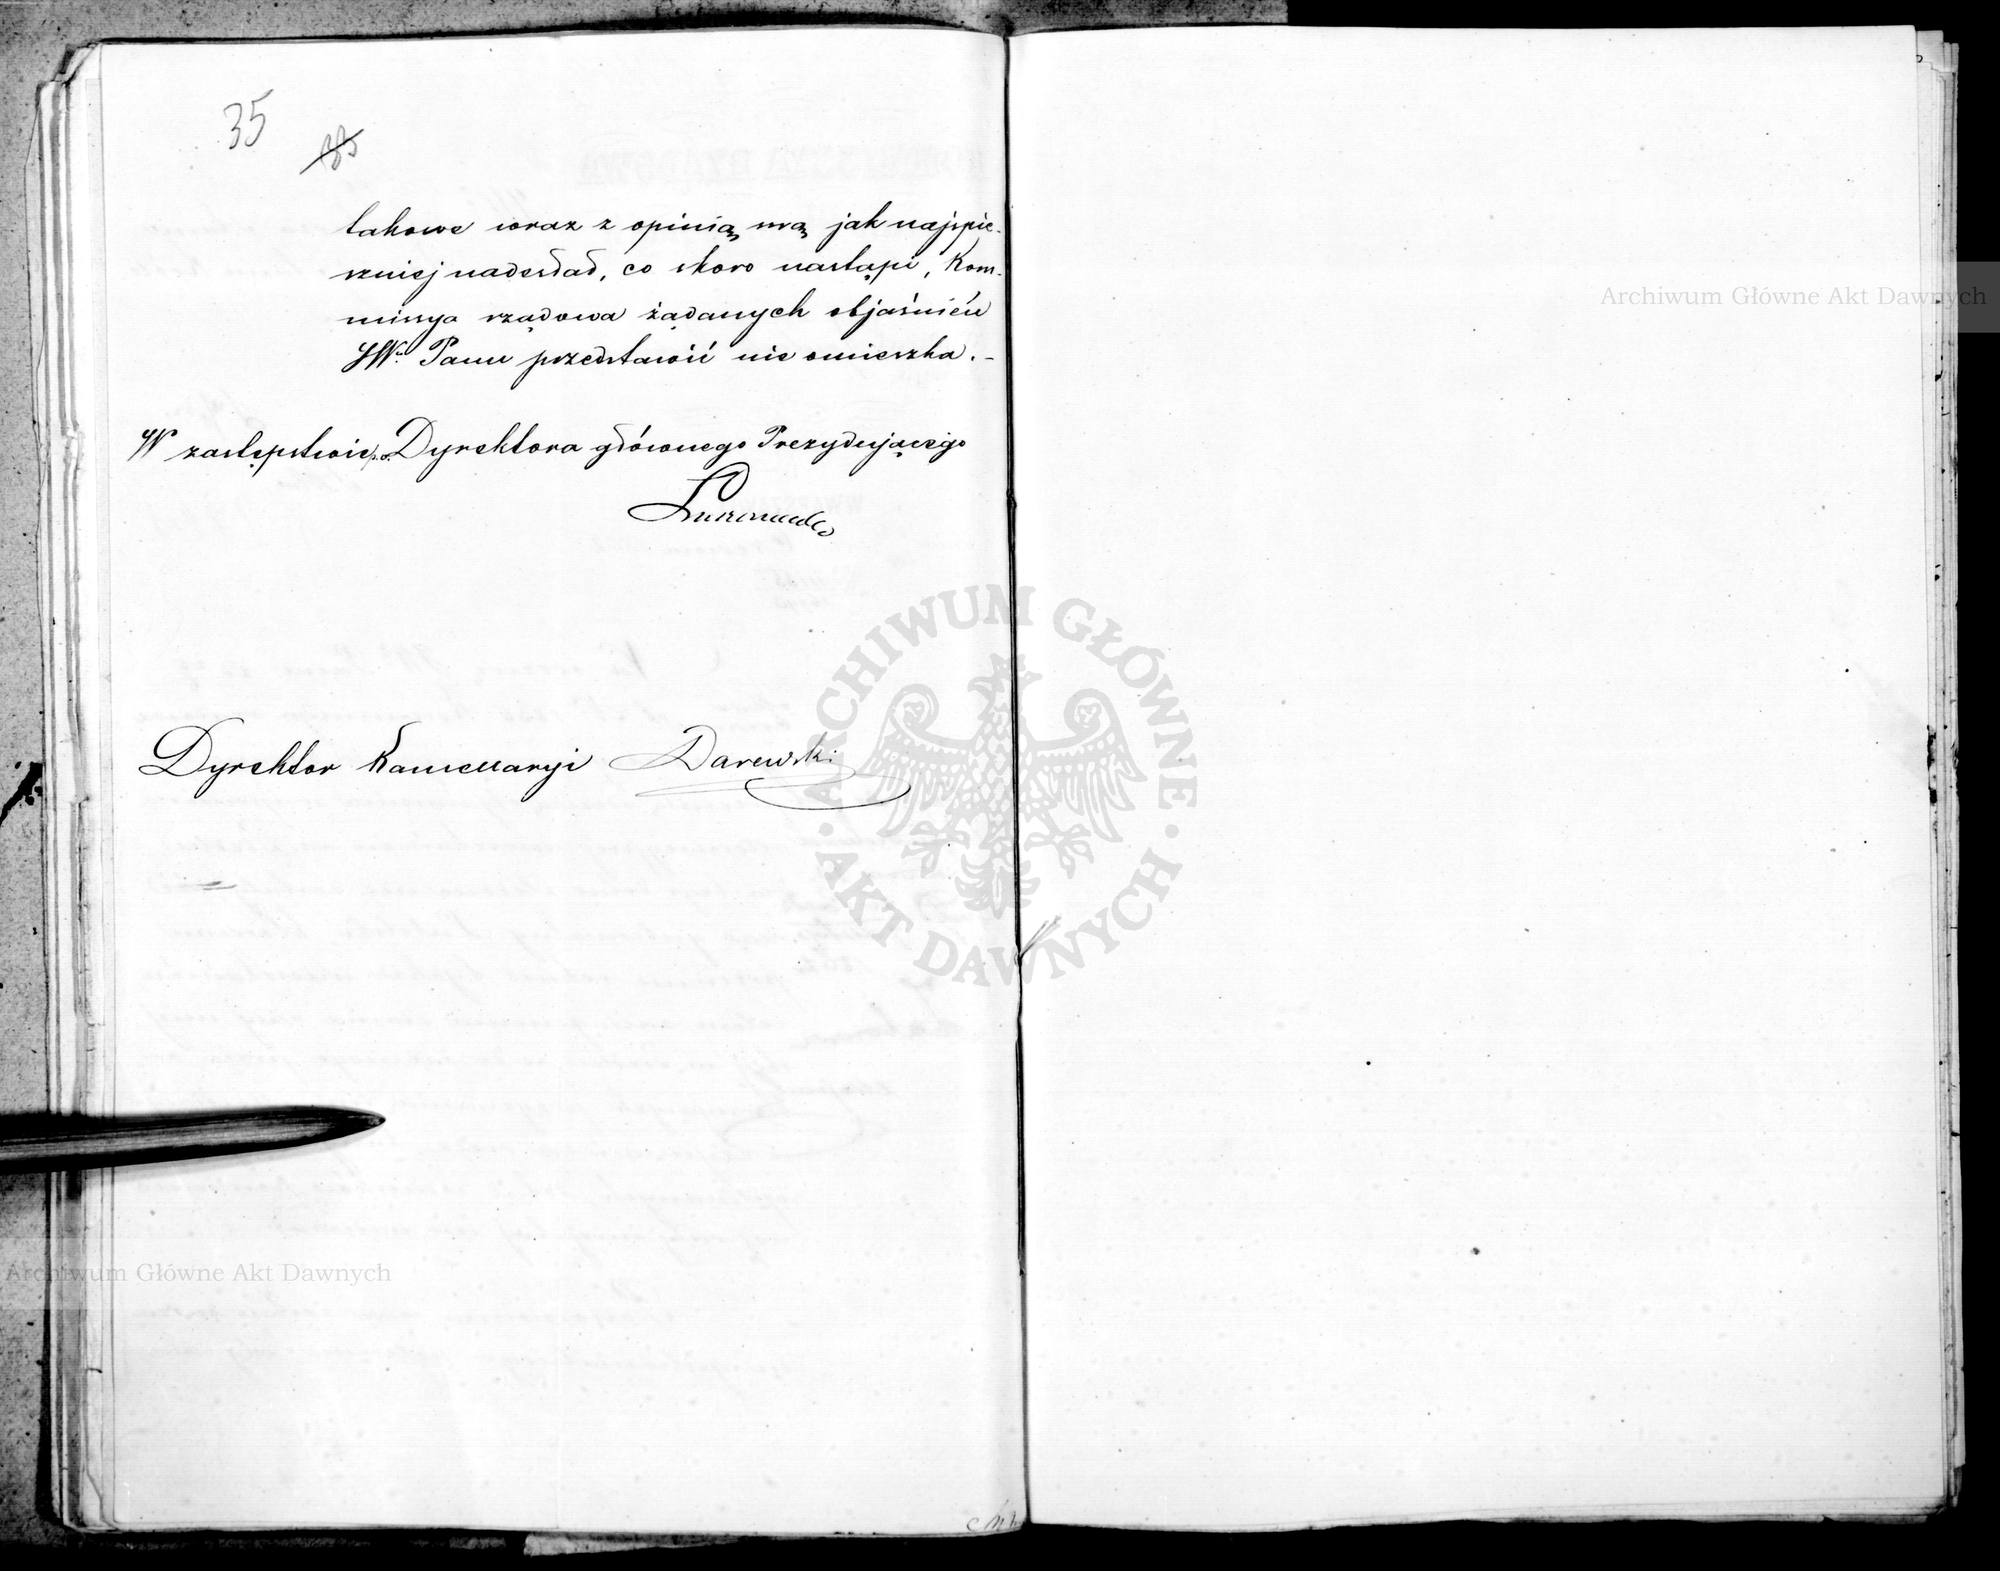 35
takowe wraz z opinią swą jak najspie-
szniej nadesłał, co skoro nastąpi, Kom-
missya rządowa żądanych objaśnień
JW. Panu przedstawić nie omieszka.-
W zastępstwie p.o. Dyrektora głównego Prezydującego
Dyrektor Kancellaryi Darewski
ARCHIWUM GŁÓWNE
AKT DAWNYCH
Archiwum Główne Akt Dawnych
Archiwum Główne Akt Dawnych